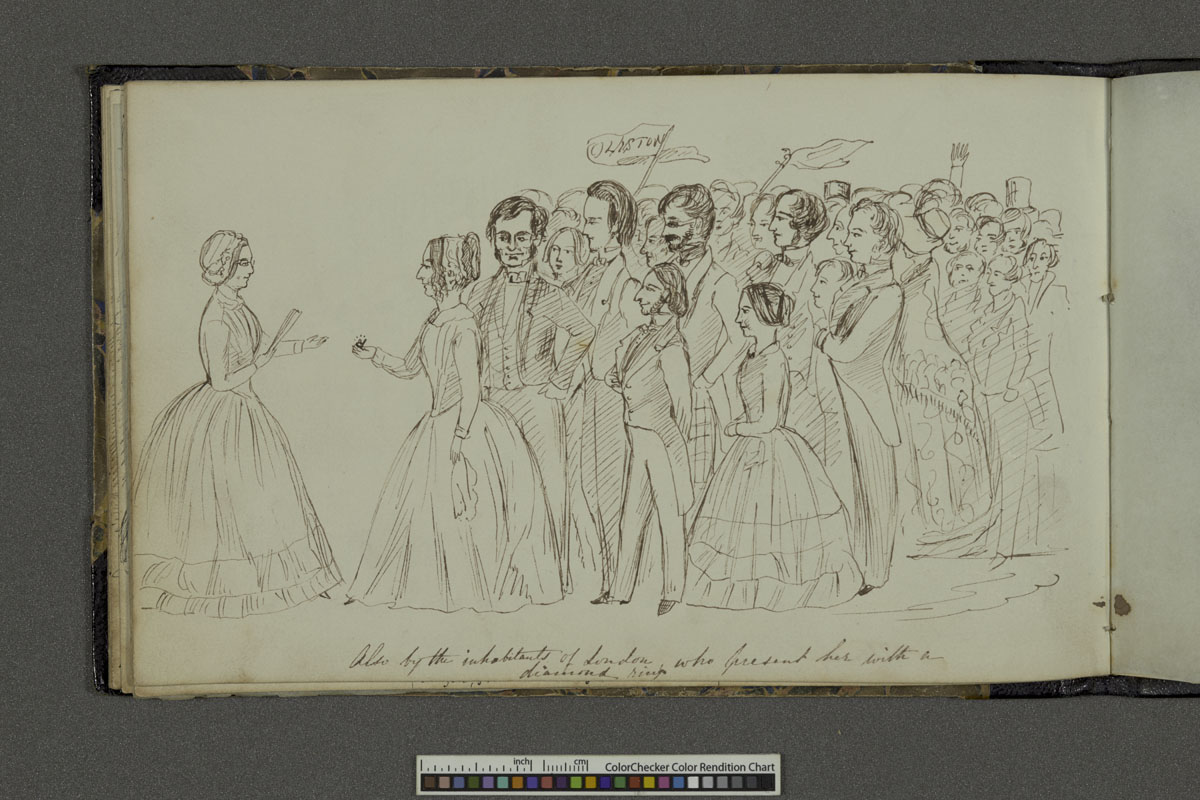 Also by the inhabitants of London, who present her with a
diamond ring
inch
cm
ColorChecker Color Rendition Chart